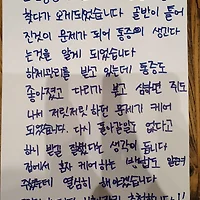 찾다가 오게되었습니다 골반이 틀어
진것이 문제가 되어 통증이 생긴다
는것을 알게 되었습니다
하체관리를 받고 있는데 통증도
좋아졌고 다리가 붓고 심하면 쥐도
나서 저릿저릿하던 문제가 케어
되었습니다. 다시 돌아갈일도 없다고
하니 받길 잘했다는 생각이 듭니다
집에서 혼자 케어하는 방법도 알려
주셨는데 열심히 해야겠습니다